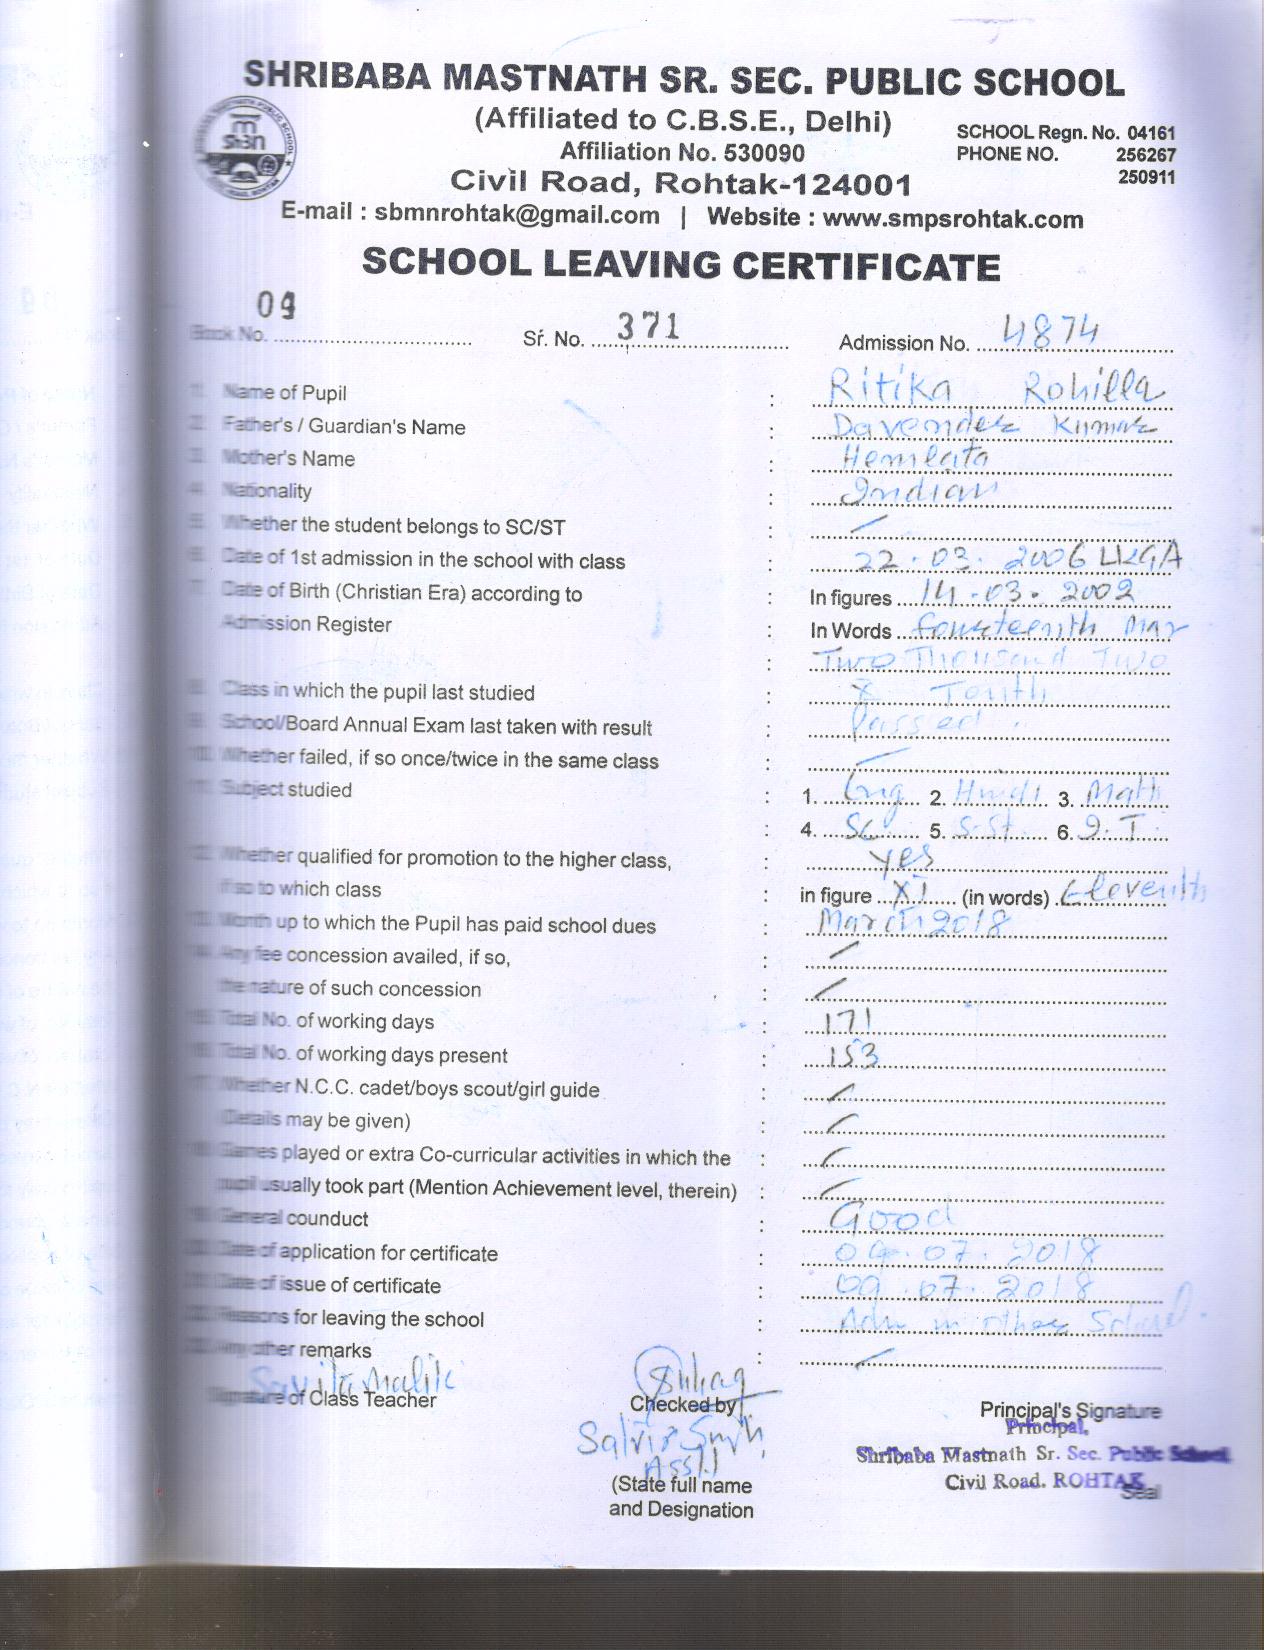 SHRIBABA MASTNATH SR. SEC. PUBLIC SCHOOL
(Affiliated to C.B.S.E., Delhi)
Affiliation No. 530090
SCHOOL Regn. No. 04161
PHONE NO. 256267
250911
Civil Road, Rohtak-124001
E-mail : sbmnrohtak@gmail.com | Website : www.smpsrohtak.com
SCHOOL LEAVING CERTIFICATE
Book No. 09 Sr. No. 371 Admission No. 4874
1. Name of Pupil : Ritika Rohilla
2. Father's / Guardian's Name : Davender Kumar
3. Mother's Name : Hemlata
4. Nationality : Indian
5. Whether the student belongs to SC/ST : /
6. Date of 1st admission in the school with class : 22.03.2006 LKGA
7. Date of Birth (Christian Era) according to : In figures 14.03.2002
Admission Register : In Words fourteenth Mar
: Two Thousand Two
8. Class in which the pupil last studied : X Tenth
9. School/Board Annual Exam last taken with result : Passed
10. Whether failed, if so once/twice in the same class : /
11. Subject studied : 1. Eng 2. Hindi 3. Math
: 4. Sc 5. S.St. 6. I.T.
12. Whether qualified for promotion to the higher class, : yes
if so to which class : in figure XI (in words) Eleventh
13. Month up to which the Pupil has paid school dues : March 2018
14. Any fee concession availed, if so, : /
the nature of such concession : /
15. Total No. of working days : 171
16. Total No. of working days present : 153
17. Whether N.C.C. cadet/boys scout/girl guide : /
(Details may be given) : /
18. Games played or extra Co-curricular activities in which the : /
pupil usually took part (Mention Achievement level, therein) : /
19. General counduct : Good
20. Date of application for certificate : 09.07.2018
21. Date of issue of certificate : 09.07.2018
22. Reasons for leaving the school : Adm in other School.
23. Any other remarks : /
Savita Malik
Signature of Class Teacher Checked by Principal's Signature
Principal,
Shribaba Mastnath Sr. Sec. Public School
Civil Road. ROHTAK
Seal
(State full name
and Designation